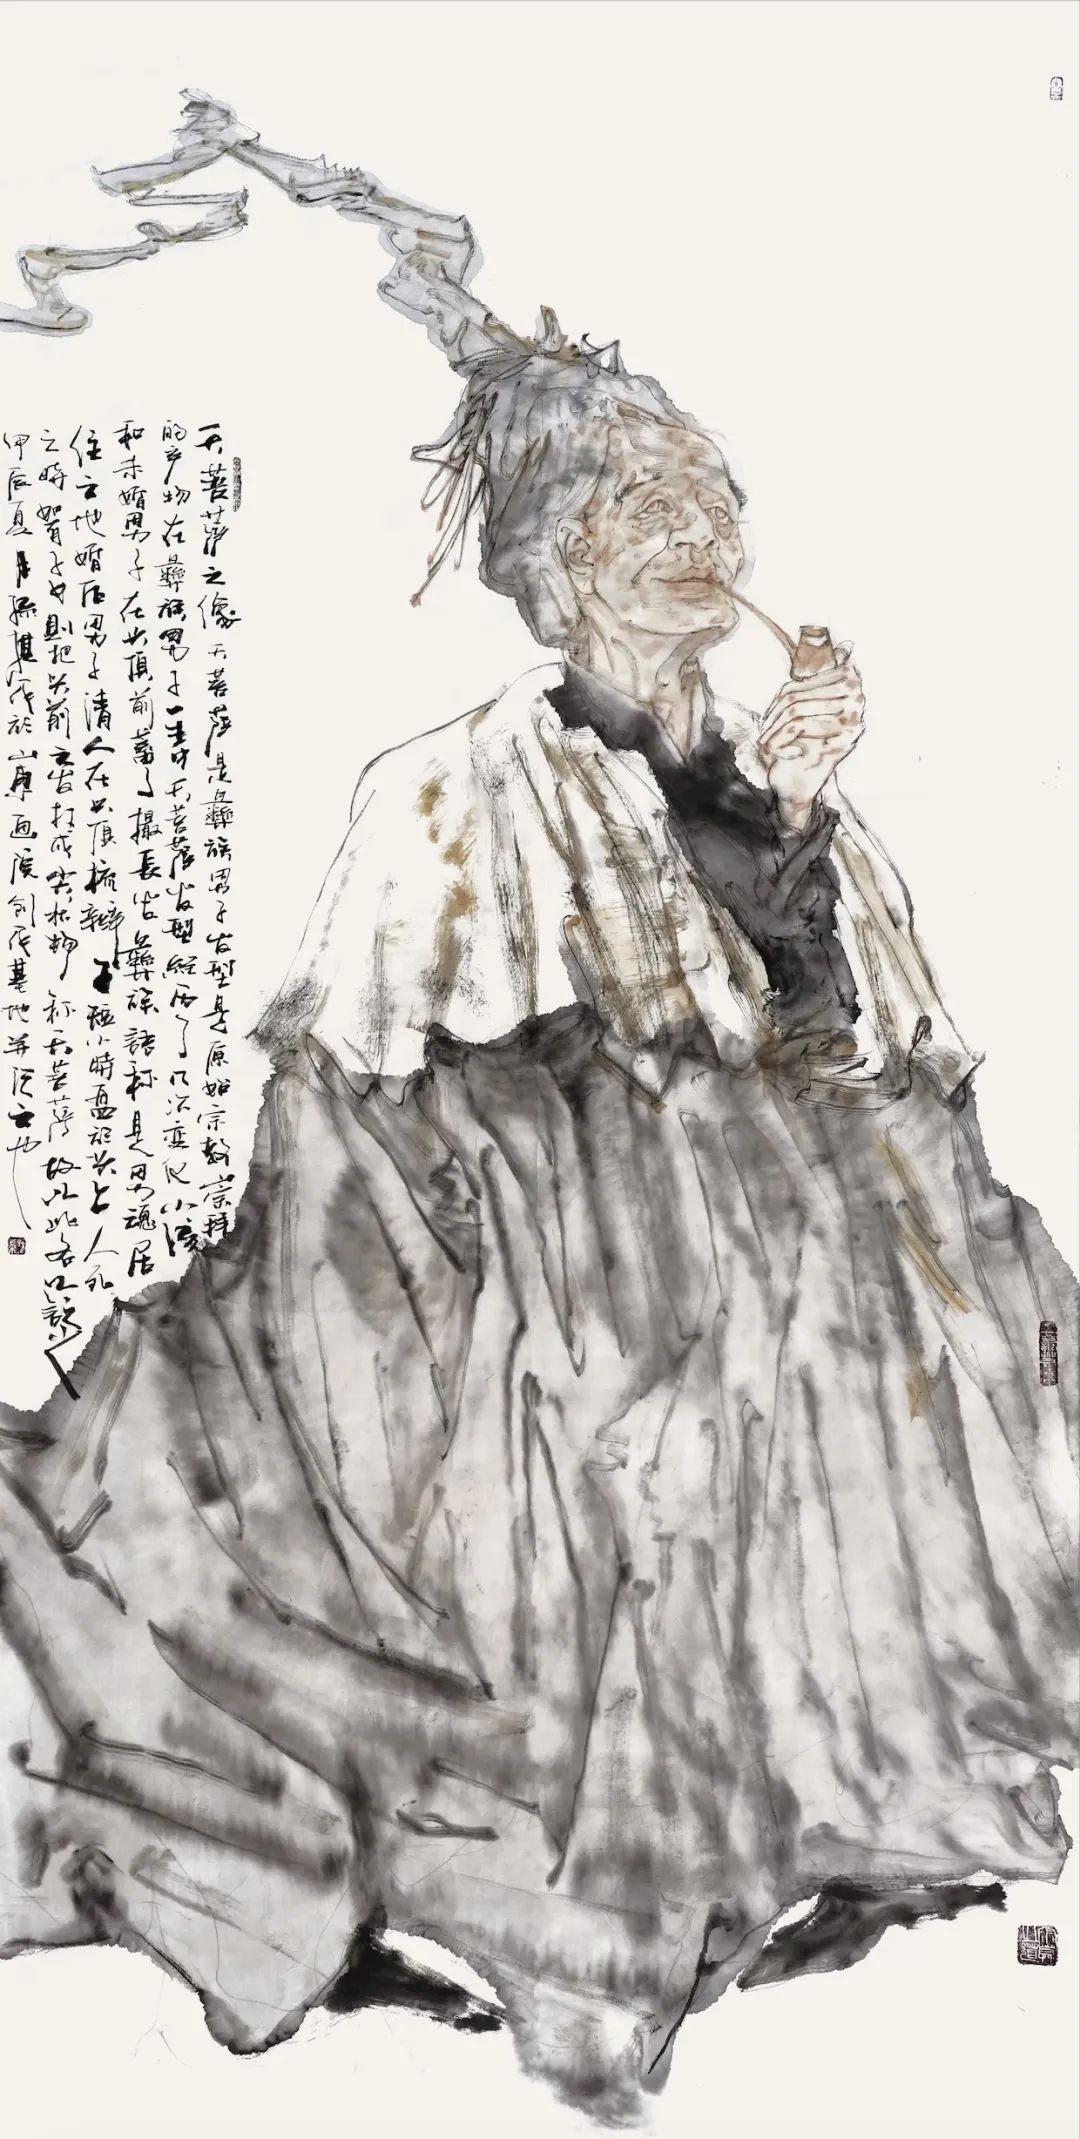 天菩萨之像 天菩萨是彝族男子发型是原始宗教崇拜
的产物在彝族男子一生中天菩萨发型经历了几次变化小孩
和未婚男子在头顶前蓄了撮长发彝族语称是男魂居
住之地婚后男子清人在头顶梳辫 短小时盘于头上人死
之时 如有子女则把头前之发打成尖状物 称天菩萨 故以此名以
甲辰夏月 於山东画院创作基地并记之也